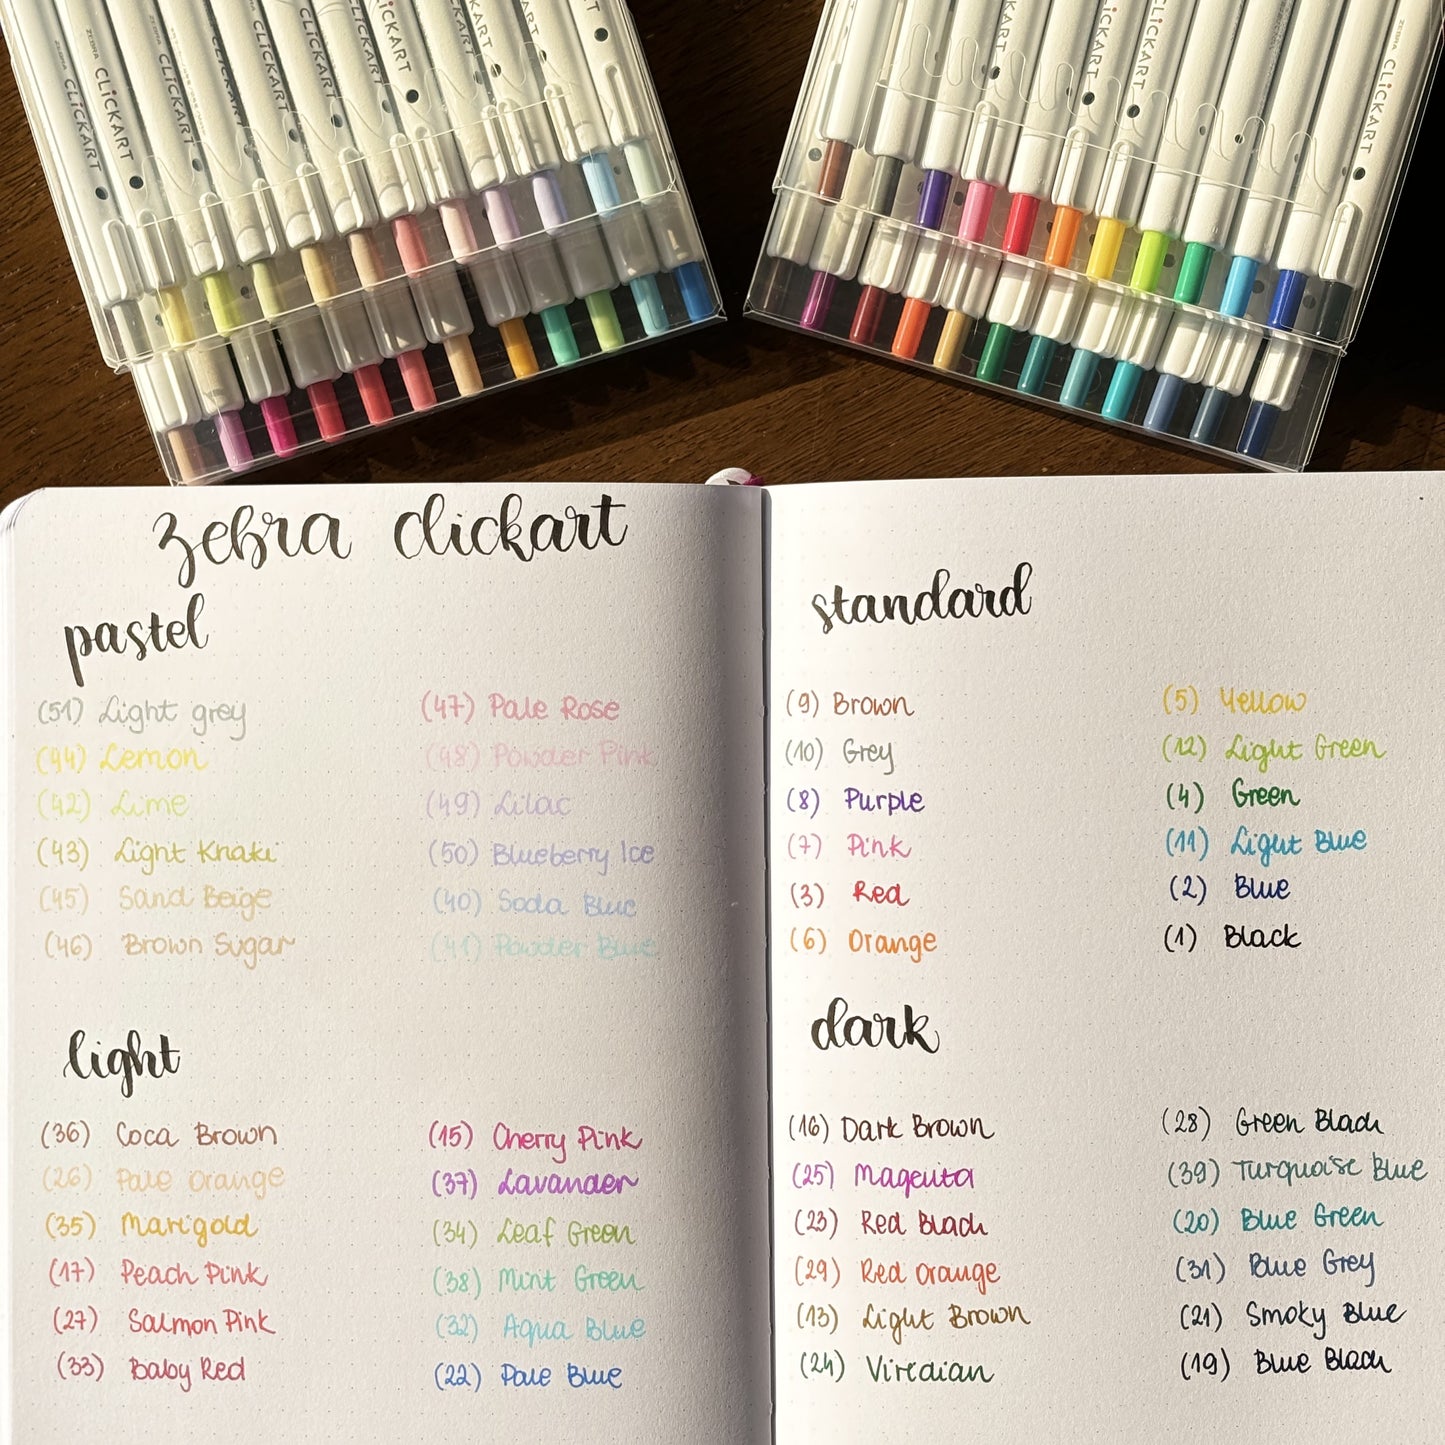 ZEBRA CLiCKART
CLiCKART
CLiCKART
CLiCKART
CLiCKART
CLiCKART
CLiCKART
CLiCKART
CLiCKART
ZEBRA CLiCKART
zebra clickart
pastel
(51) Light grey
(44) Lemon
(42) Lime
(43) Light Khaki
(45) Sand Beige
(46) Brown Sugar
(47) Pale Rose
(48) Powder Pink
(49) Lilac
(50) Blueberry Ice
(40) Soda Blue
(41) Powder Blue
light
(36) Coca Brown
(26) Pale Orange
(35) Marigold
(17) Peach Pink
(27) Salmon Pink
(33) Baby Red
(15) Cherry Pink
(37) Lavander
(34) Leaf Green
(38) Mint Green
(32) Aqua Blue
(22) Pale Blue
standard
(9) Brown
(10) Grey
(8) Purple
(7) Pink
(3) Red
(6) Orange
(5) Yellow
(12) Light Green
(4) Green
(11) Light Blue
(2) Blue
(1) Black
dark
(16) Dark Brown
(25) Magenta
(23) Red Black
(29) Red Orange
(13) Light Brown
(24) Viridian
(28) Green Black
(39) Turquoise Blue
(20) Blue Green
(31) Blue Grey
(21) Smoky Blue
(19) Blue Black